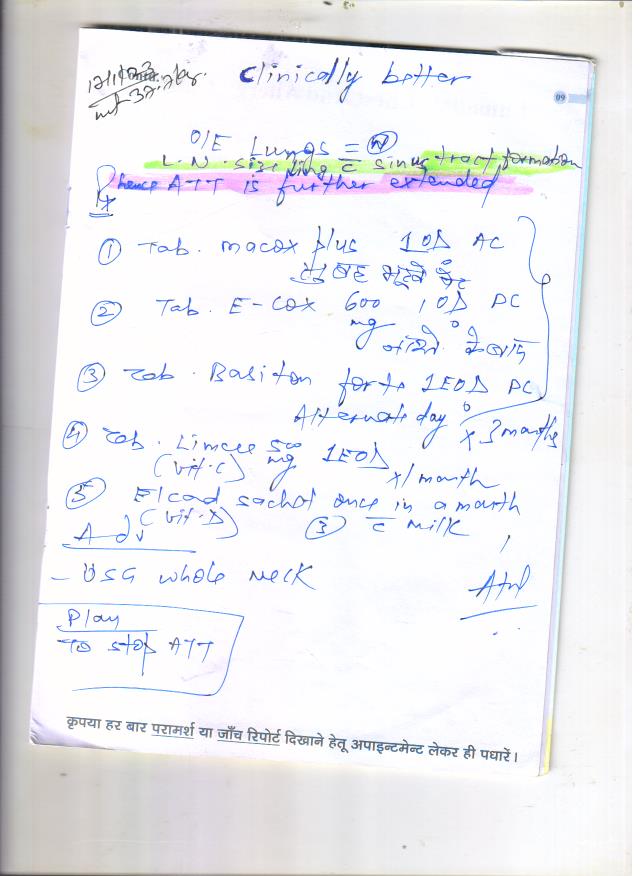 Clinically better
09
O/E Lungs = N
L.N. sizeling c̄ sinus tract formation
hence ATT is further extended
Rx
① Tab. macox plus 1OD AC
सुबह भूखे पेट
② Tab. E-Cox 600 mg 1OD PC
के बाद
③ Tab. Basiton forte 1EOD PC
Alternate day
x 3 months
④ Tab. Limcee 500 mg 1EOD
(vit.C) x 1 month
⑤ sachet once in a month
(vit.D) ③ c̄ milk
Adv
- USG whole neck
Plan
To stop ATT
कृपया हर बार परामर्श या जाँच रिपोर्ट दिखाने हेतू अपाइन्टमेन्ट लेकर ही पधारें।